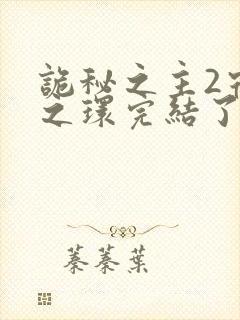 詭秘之主2宿
之環完結了
蓁蓁葉